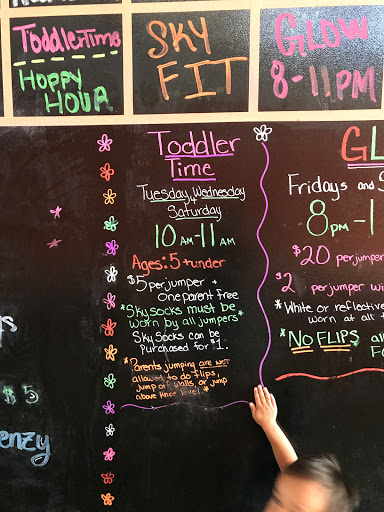 Toddler Time
Hoppy
HOUR
SKY
FIT
GLOW
8-11PM
Toddler
Time
Tuesday, Wednesday
+
Saturday
10 AM-11 AM
Ages: 5 + under
$5 per jumper +
one parent free
*Sky Socks must be
worn by all jumpers*
Sky Socks can be
Purchased for $1.
*Parents jumping are not
allowed to do flips,
jump off walls, or jump
above knee level!*
GL
Fridays and
8PM-1
$20 per jumper
$2 per jumper wi
*White or reflective
worn at all t
*NO FLIPS al
$5
enzy